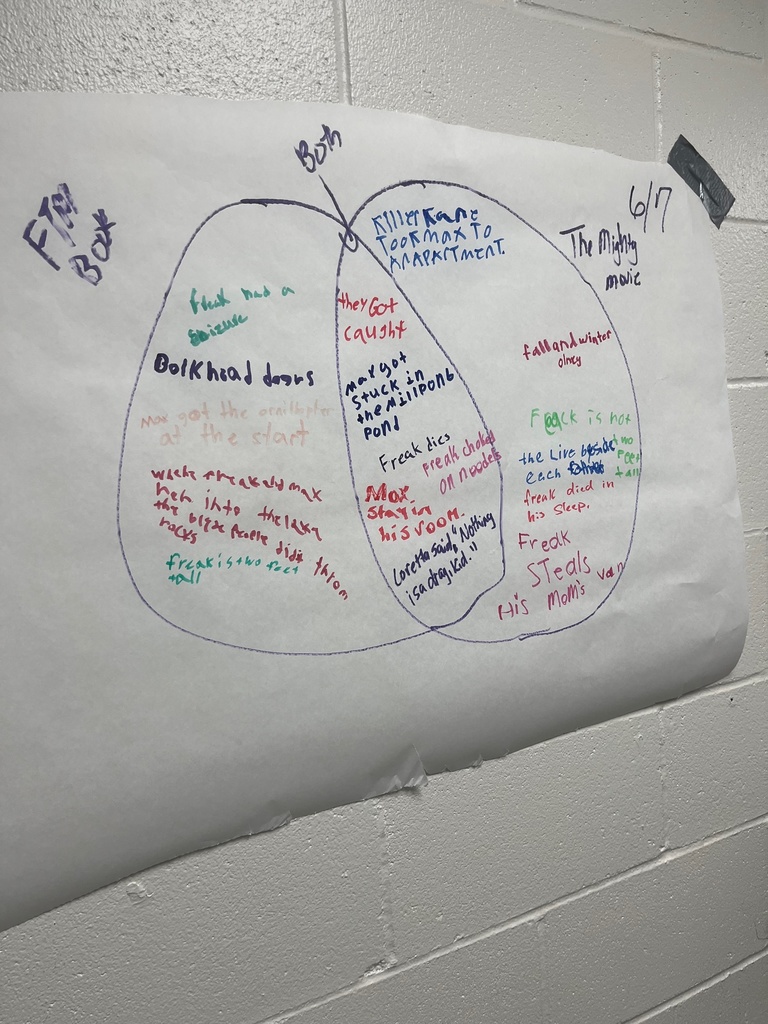 Both
6/7
FTM
Book
The Mighty
movie
freak had a
seizure
Bolkhead doors
Max got the ornithopter
at the start
when freak and max
hen into the lake
the other people didt throm
rocks
freak is two feet
tall
Killer Kane
TOOK MAX TO
AN APARTMENT.
they Got
caught
max got
stuck in
the Millpond
pond
Freak dies
freak choked
on noodels
Max
stay in
his room.
Loretta said, "Nothing
is a drag, kid."
fall and winter
olney
Freack is not
two
feet
tall
the Live beside
each
freak died in
his sleep.
Freak
STeals
His Mom's van